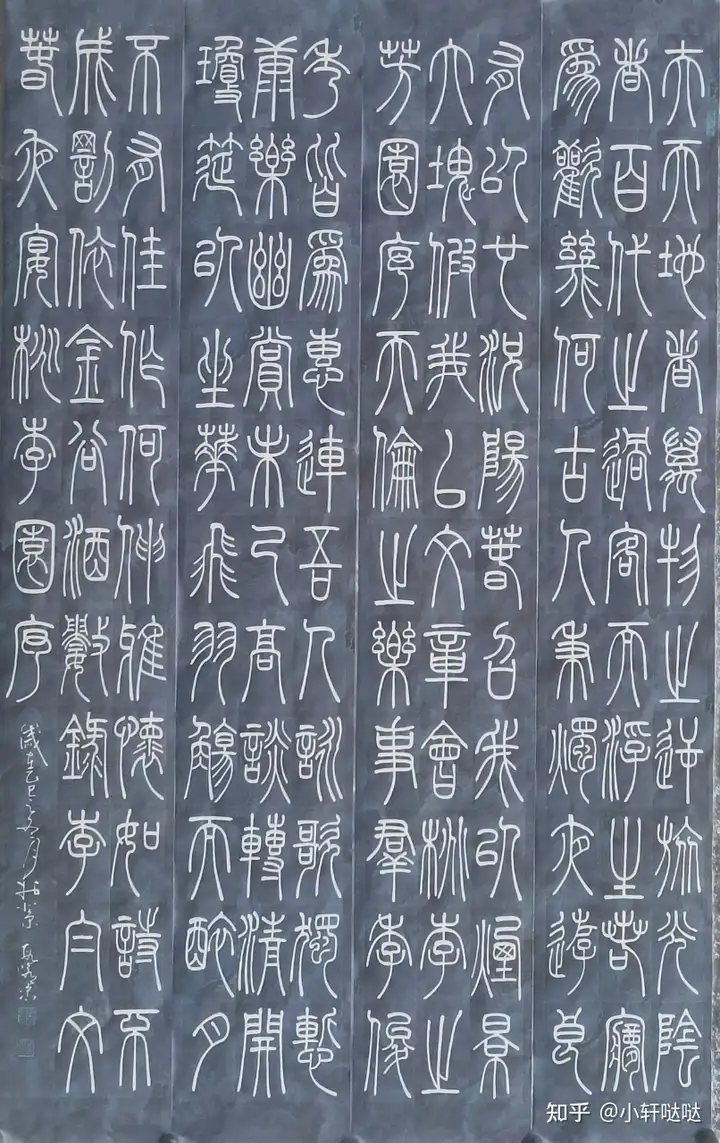 夫天地者萬物之逆旅光陰
者百代之過客而浮生若夢
爲歡幾何古人秉燭夜遊良
有以也況陽春召我以煙景
大塊假我以文章會桃李之
芳園序天倫之樂事羣季俊
秀皆爲惠連吾人詠歌獨慙
康樂幽賞未已高談轉清開
瓊筵以坐華飛羽觴而醉月
不有佳作何伸雅懷如詩不
成罰依金谷酒數錄李白文
春夜宴桃李園序
歲在乙巳
知乎 @小轩哒哒